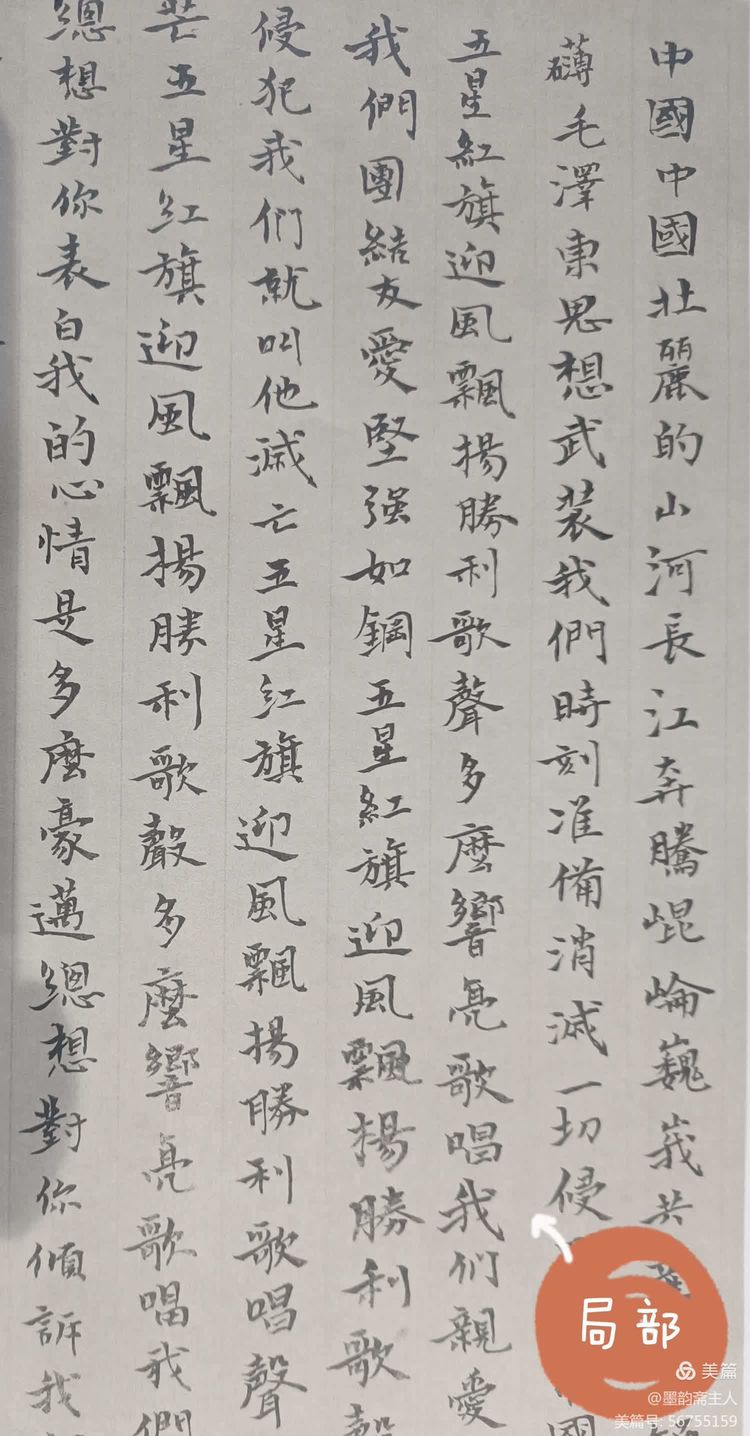 中國中國壯麗的山河長江奔騰崐崙巍峩共
礴毛澤東思想武裝我們時刻准備消滅一切侵國
五星紅旗迎風飄揚勝利歌聲多麼響亮歌唱我们親愛
我們團結友愛堅强如鋼五星紅旗迎風飄揚勝利歌
侵犯我们就叫他滅亡五星红旗迎風飄揚勝利歌唱聲
芒五星红旗迎風飄揚勝利歌聲多麼響亮歌唱我們
總想對你表白我的心情是多麼豪邁總想對你傾訴我
局部
美篇
@墨韵斋主人
美篇号: 56755159